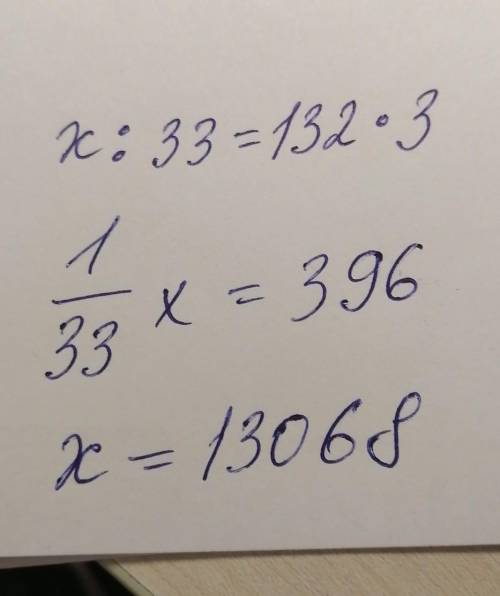 x : 33 = 132 · 3
1/33 x = 396
x = 13068